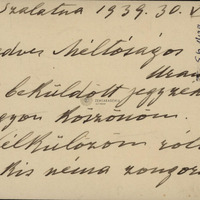 Szalatna 1939. 30. V
edves Méltóságos
Uram
beküldött jegyzék
gyon köszönöm.
élkülözöm
Kis néma zongor